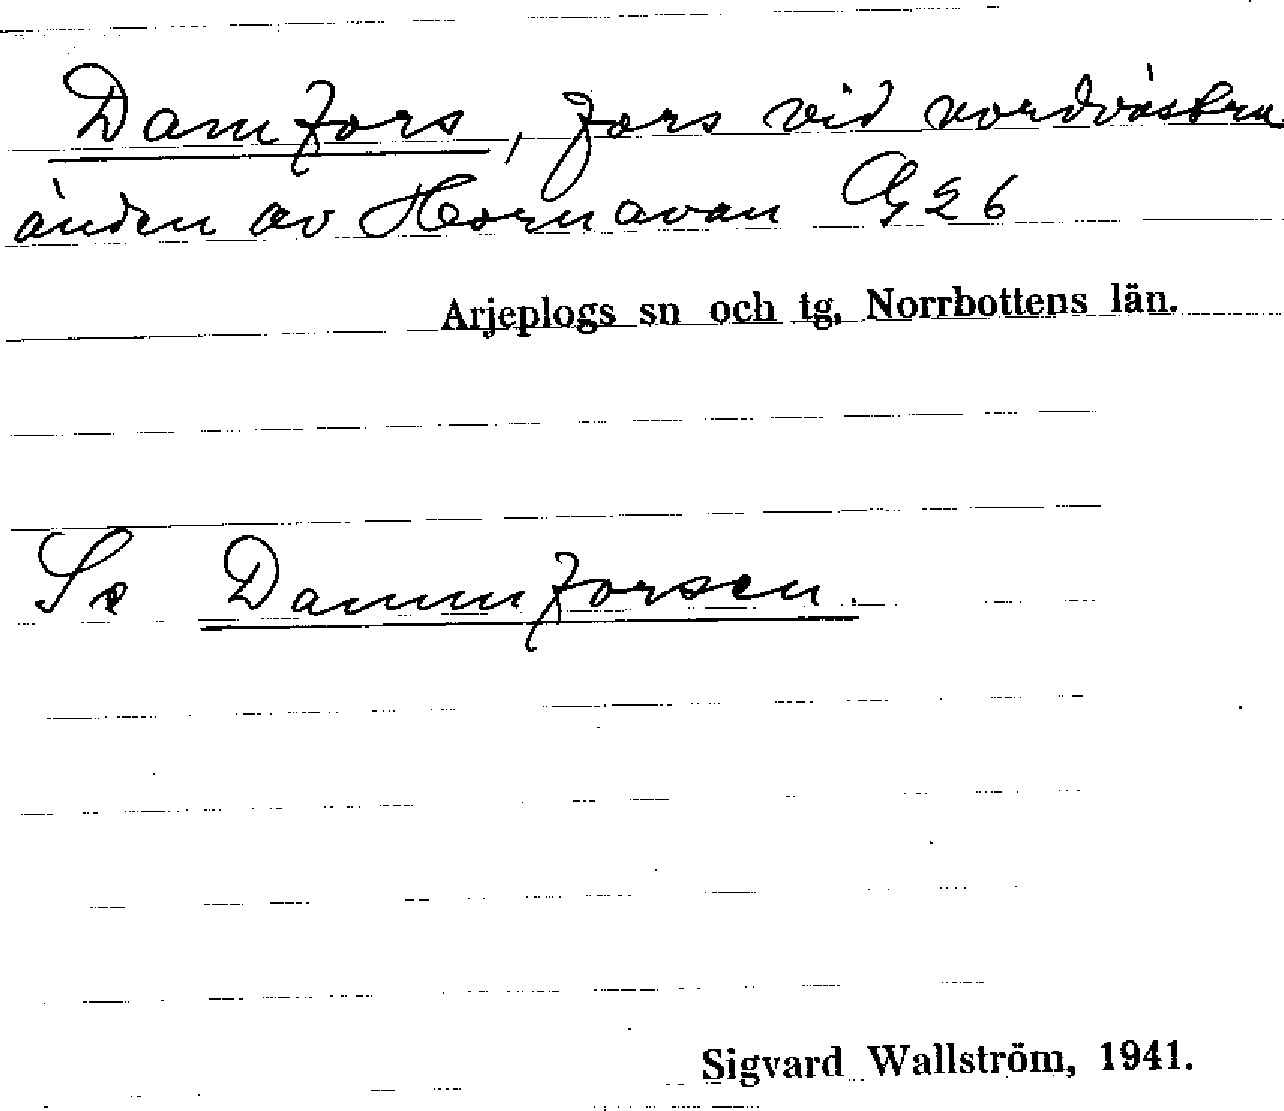 Damfors, fors vid nordvästra
änden av Hornavan G 26
Arjeplogs sn och tg, Norrbottens län.
Se Dammforsen.
Sigvard Wallström, 1941.